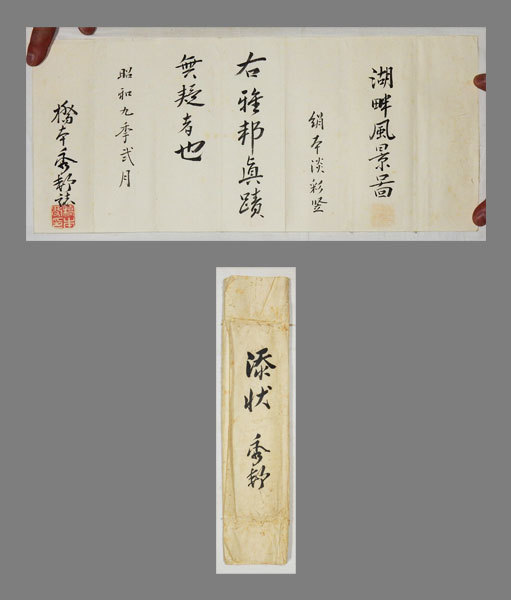 湖畔風景啚
絹本淡彩竪
右雅邦眞蹟
無疑者也
昭和九季弐月
橋本秀邦誌
添状 秀邦